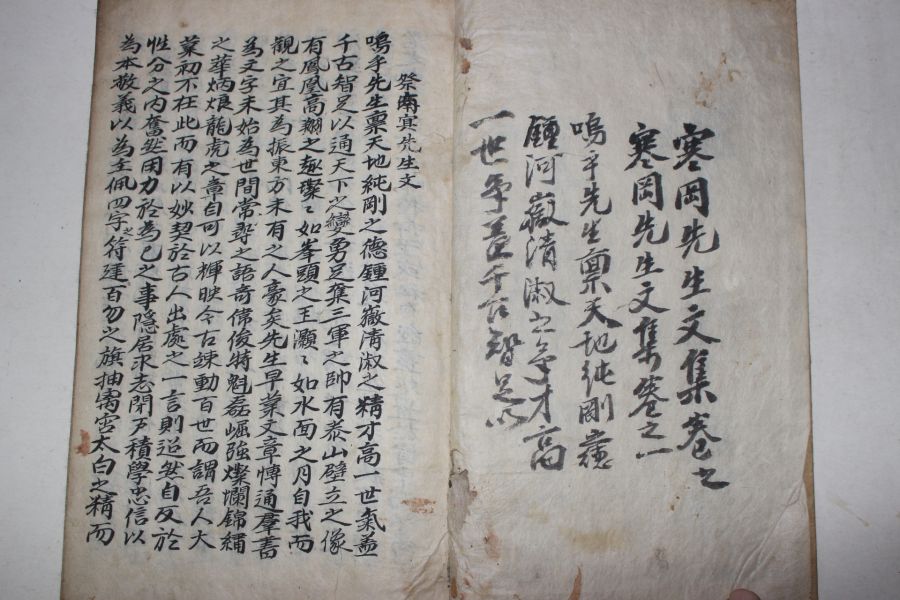 寒岡先生文集卷之
寒岡先生文集卷之一
嗚乎先生稟天地純剛德
鍾河嶽清淑之氣才高
一世氣盖千古智足以
祭南冥先生文
嗚乎先生稟天地純剛之德鍾河嶽清淑之精才高一世氣盖
千古智足以通天下之變勇足奪三軍之帥有泰山壁立之像
有鳳凰高翔之趣璨〻如峯頭之玉灝〻如水面之月自我而
觀之宜其為振東方未有之人豪矣先生早業文章博通羣書
為文字未始為世間常尋之語奇偉俊特魁磊崛強燦爛錦繡
之華炳烺龍虎之章自可以輝映今古竦動百世而謂吾人大
業初不在此而有以妙契於古人出處之一言則逌然自反於
性分之內奮然用力於為己之事隱居求志閉戶積學忠信以
為本敬義以為主佩四字之符建百勿之旗抽宮太白之精而